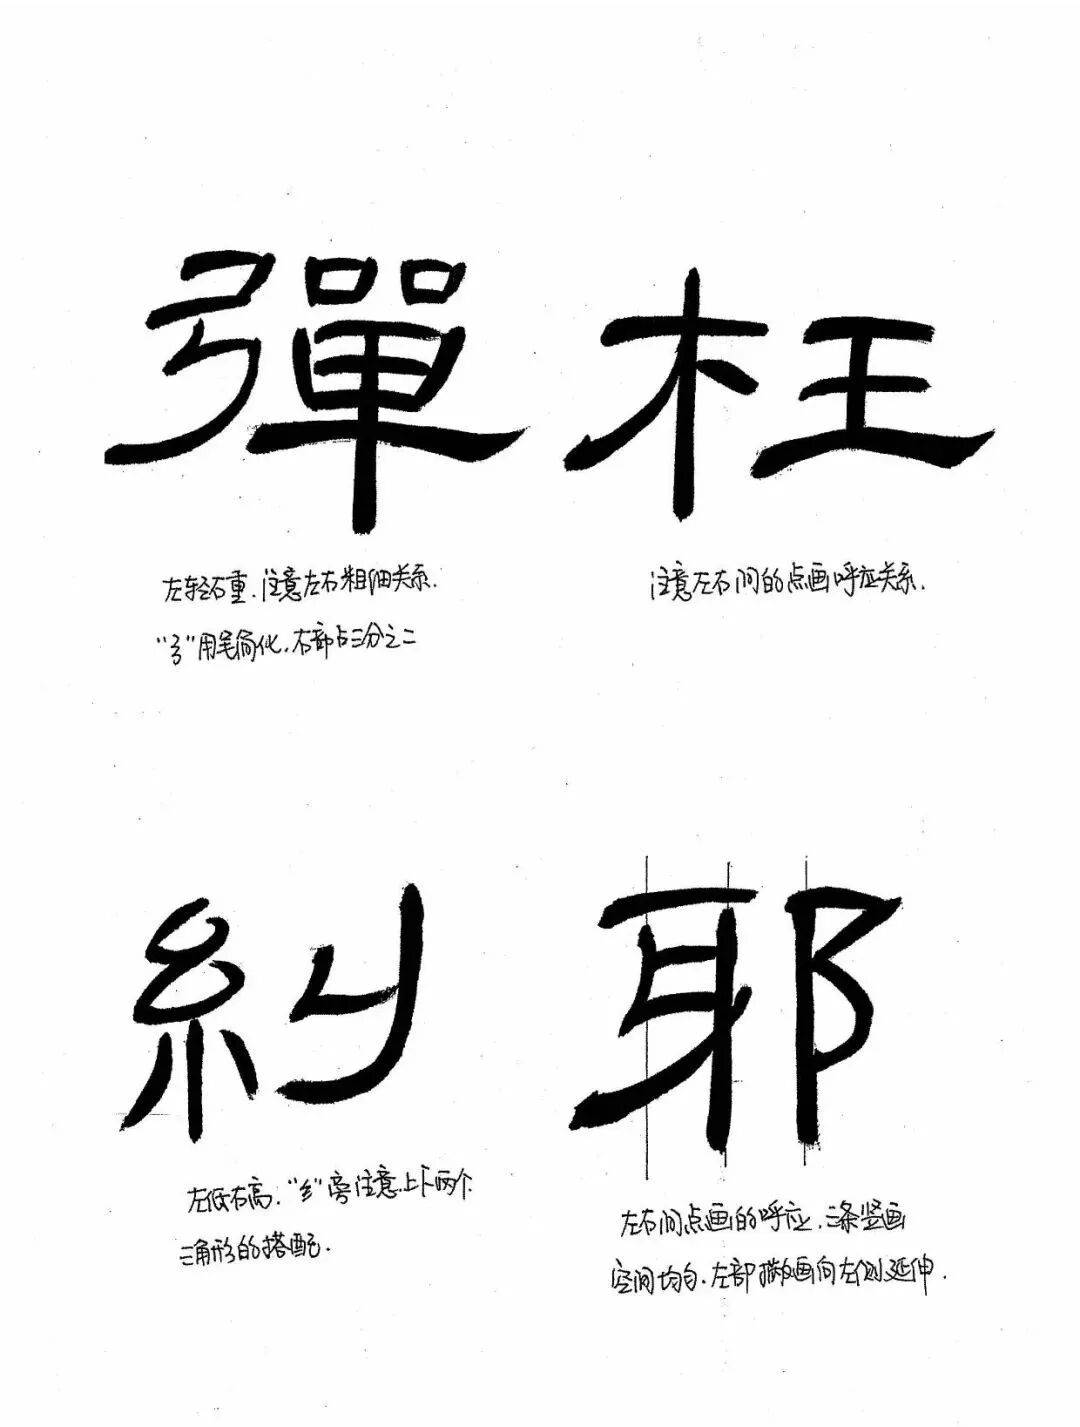 彈
左轻右重.注意左右粗细关系.
"弓"用笔简化.右部占三分之二
枉
注意左右间的点画呼应关系.
糾
左低右高."纟"旁注意上下两个
三角形的搭配.
耶
左右间点画的呼应.三条竖画
空间均匀.左部撇画向左侧延伸.